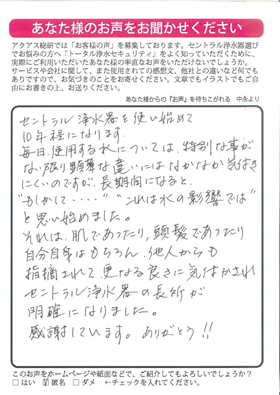 あなた様のお声をお聞かせください
アクアス総研では「お客様の声」を募集しております。セントラル浄水器選び
でお悩みの方へ『トータル浄水セキュリティ』をよく知っていただくために、
実際にご利用いただいたあなた様の率直なお声をお寄せください。
サービスや会社に関して、また使用されての感想文、他社との違いなど何でも
ありますので、お気づきのことをお寄せください。文章でもイラストでもご自
由にお書きの上、お送りください。
あなた様からの『お声』を待ちこがれる 中永より
セントラル浄水器を使い始めて
10年程になります。
毎日使用する水については、特別な事が
ない限り顕著な違いにはなかなか気付き
にくいのですが、長期間になると、
"もしかして・・・・" "これは水の影響では"
と思い始めました。
それは、肌であったり、頭髪であったり
自分自身はもちろん、他人からも
指摘されて更なる良さに気付かされ
セントラル浄水器の長所が
明確になりました。
感謝しています。ありがとう!!
このお声をホームページや紙面などで、ご紹介してもよろしいでしょうか?
□ はい ☑ 匿名 □ ダメ ←チェックを入れてください。